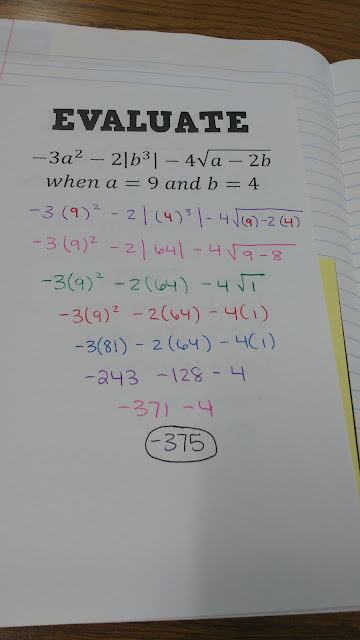 EVALUATE
−3a² − 2|b³| − 4√(a − 2b)
when a = 9 and b = 4
-3(9)² - 2|(4)³| - 4√((9)-2(4))
-3(9)² - 2|64| - 4√(9-8)
-3(9)² - 2(64) - 4√1
-3(9)² - 2(64) - 4(1)
-3(81) - 2(64) - 4(1)
-243 -128 - 4
-371 - 4
-375